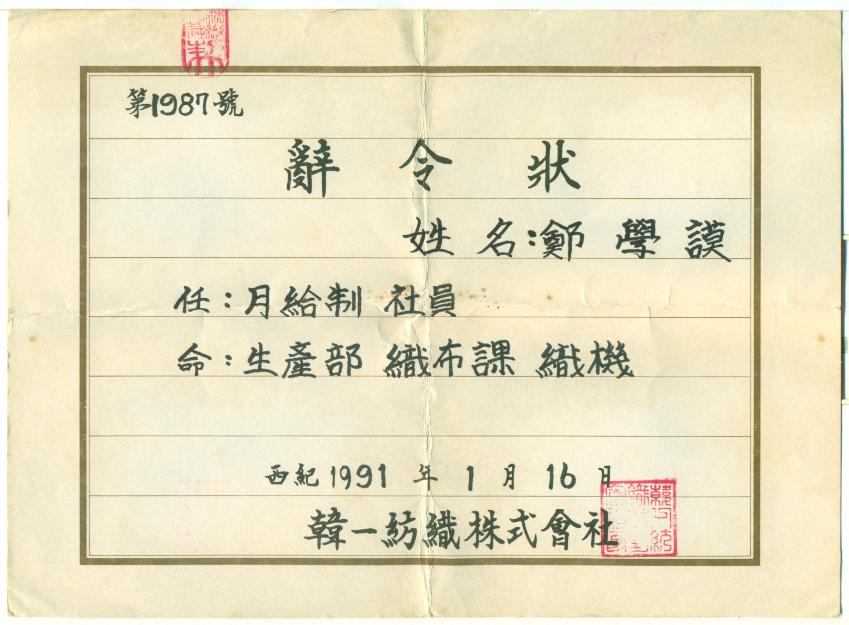 第1987號
辭令狀
姓名:鄭學謨
任:月給制 社員
命:生產部 織布課 織機
西紀 1991 年 1 月 16 日
韓一紡織株式會社